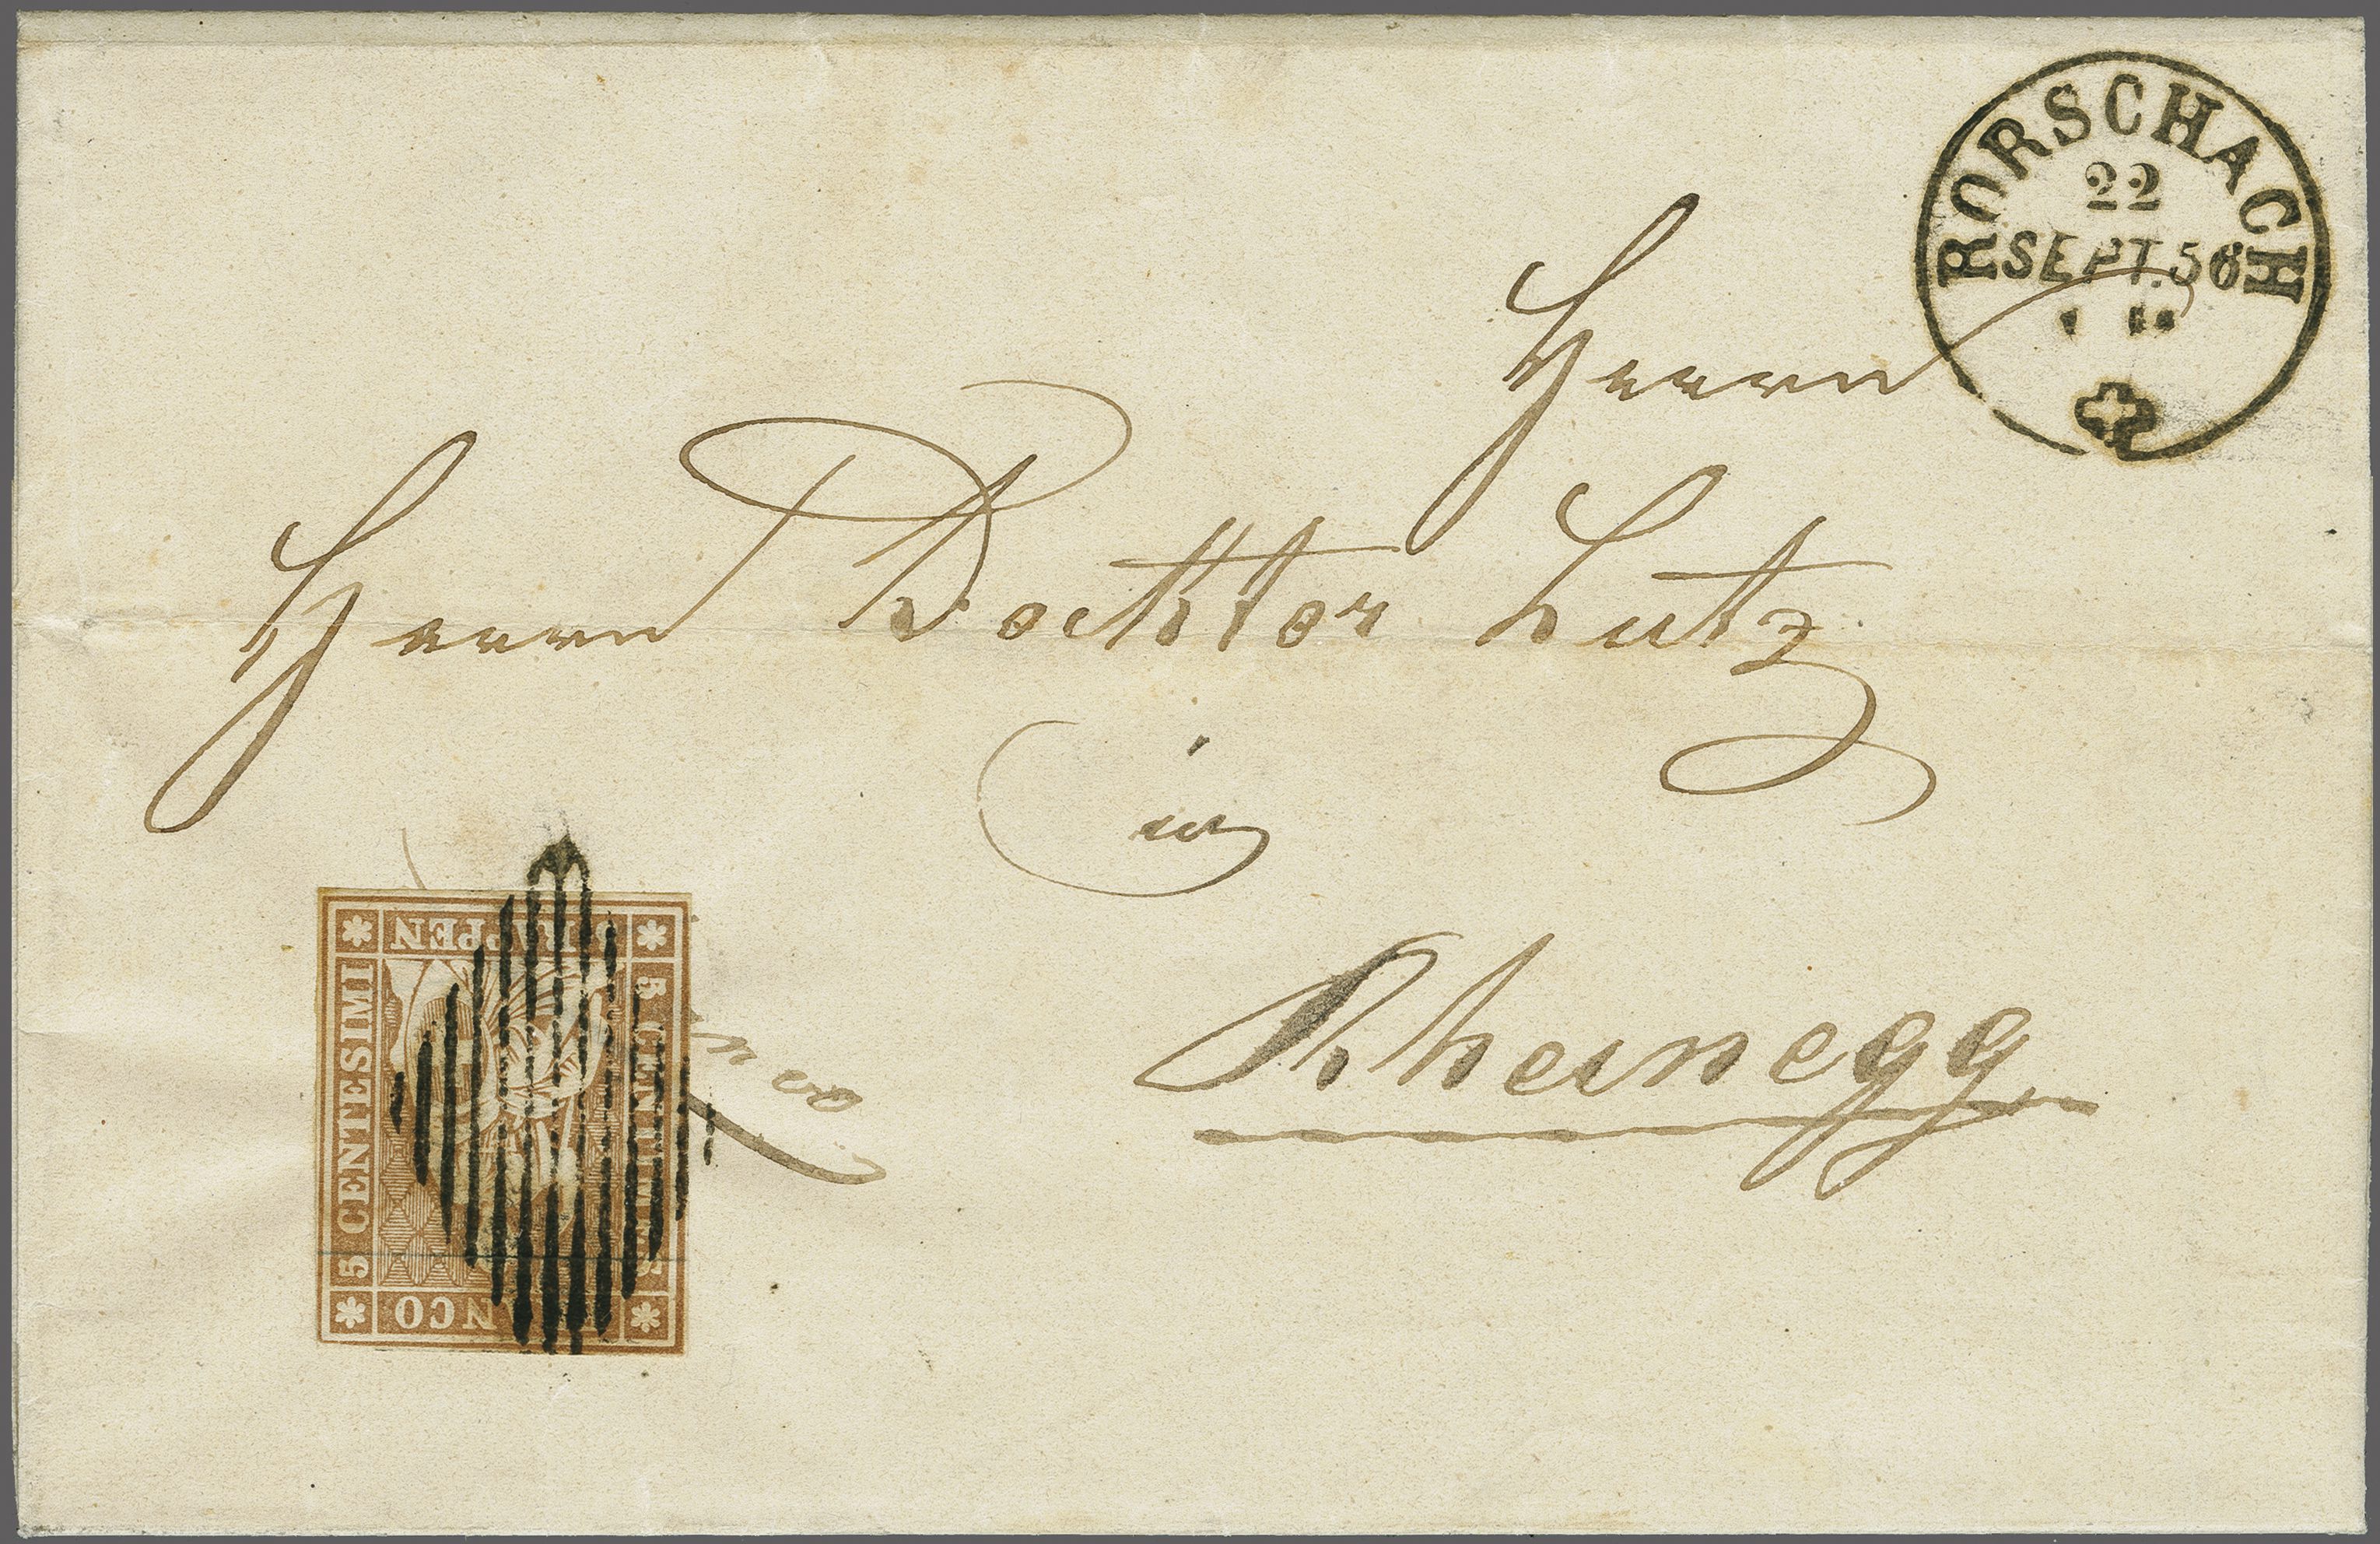 RORSCHACH
22
SEPT. 56
Herrn
Herrn Docktor Lutz
in
Rheinegg
5 RAPPEN
5 CENTESIMI
5 CENTIMES